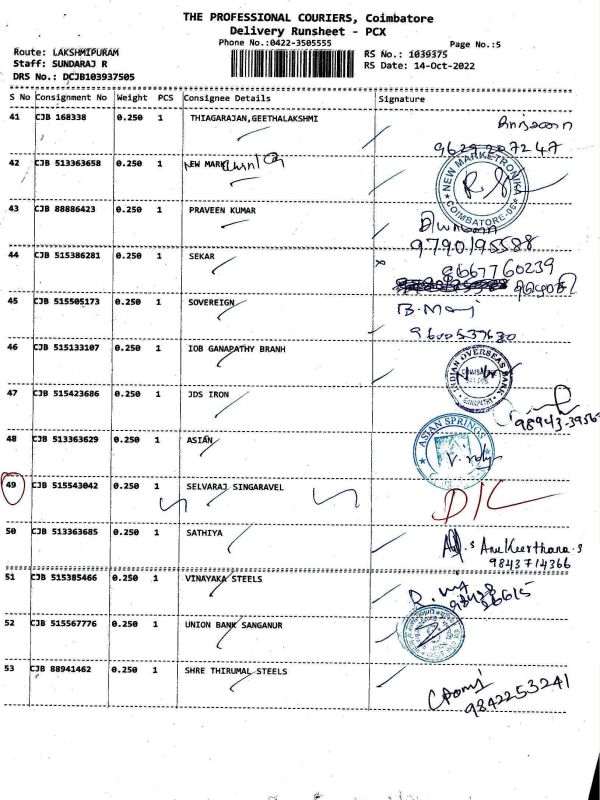 THE PROFESSIONAL COURIERS, Coimbatore
Delivery Runsheet - PCX
Phone No.:0422-3505555
Page No.:5
Route: LAKSHMIPURAM
Staff: SUNDARAJ R
DRS No.: DCJB103937505
RS No.: 1039375
RS Date: 14-Oct-2022
S No Consignment No Weight PCS Consignee Details Signature
41 CJB 168338 0.250 1 THIAGARAJAN,GEETHALAKSHMI
42 CJB 513363658 0.250 1 NEW MARK
NEW MARKETRONIKS COIMBATORE
43 CJB 88886423 0.250 1 PRAVEEN KUMAR
9790195588
44 CJB 515386281 0.250 1 SEKAR
9667760239
45 CJB 515505173 0.250 1 SOVEREIGN
B. Mani
46 CJB 515133107 0.250 1 IOB GANAPATHY BRANH
INDIAN OVERSEAS BANK GANAPATHY
47 CJB 515423686 1 0.250 JDS IRON
98943-39569
48 CJB 513363629 0.250 1 ASIAN
ASIAN SPRINGS
49 CJB 515543042 0.250 1 SELVARAJ SINGARAVEL
D/L
50 CJB 513363685 0.250 1 SATHIYA
S. Anu Keerthana.s
9843714366
51 CJB 515385466 0.250 1 VINAYAKA STEELS
52 CJB 515567776 0.250 1 UNION BANK SANGANUR
53 CJB 88941462 0.250 1 SHRE THIRUMAL STEELS
9842253241